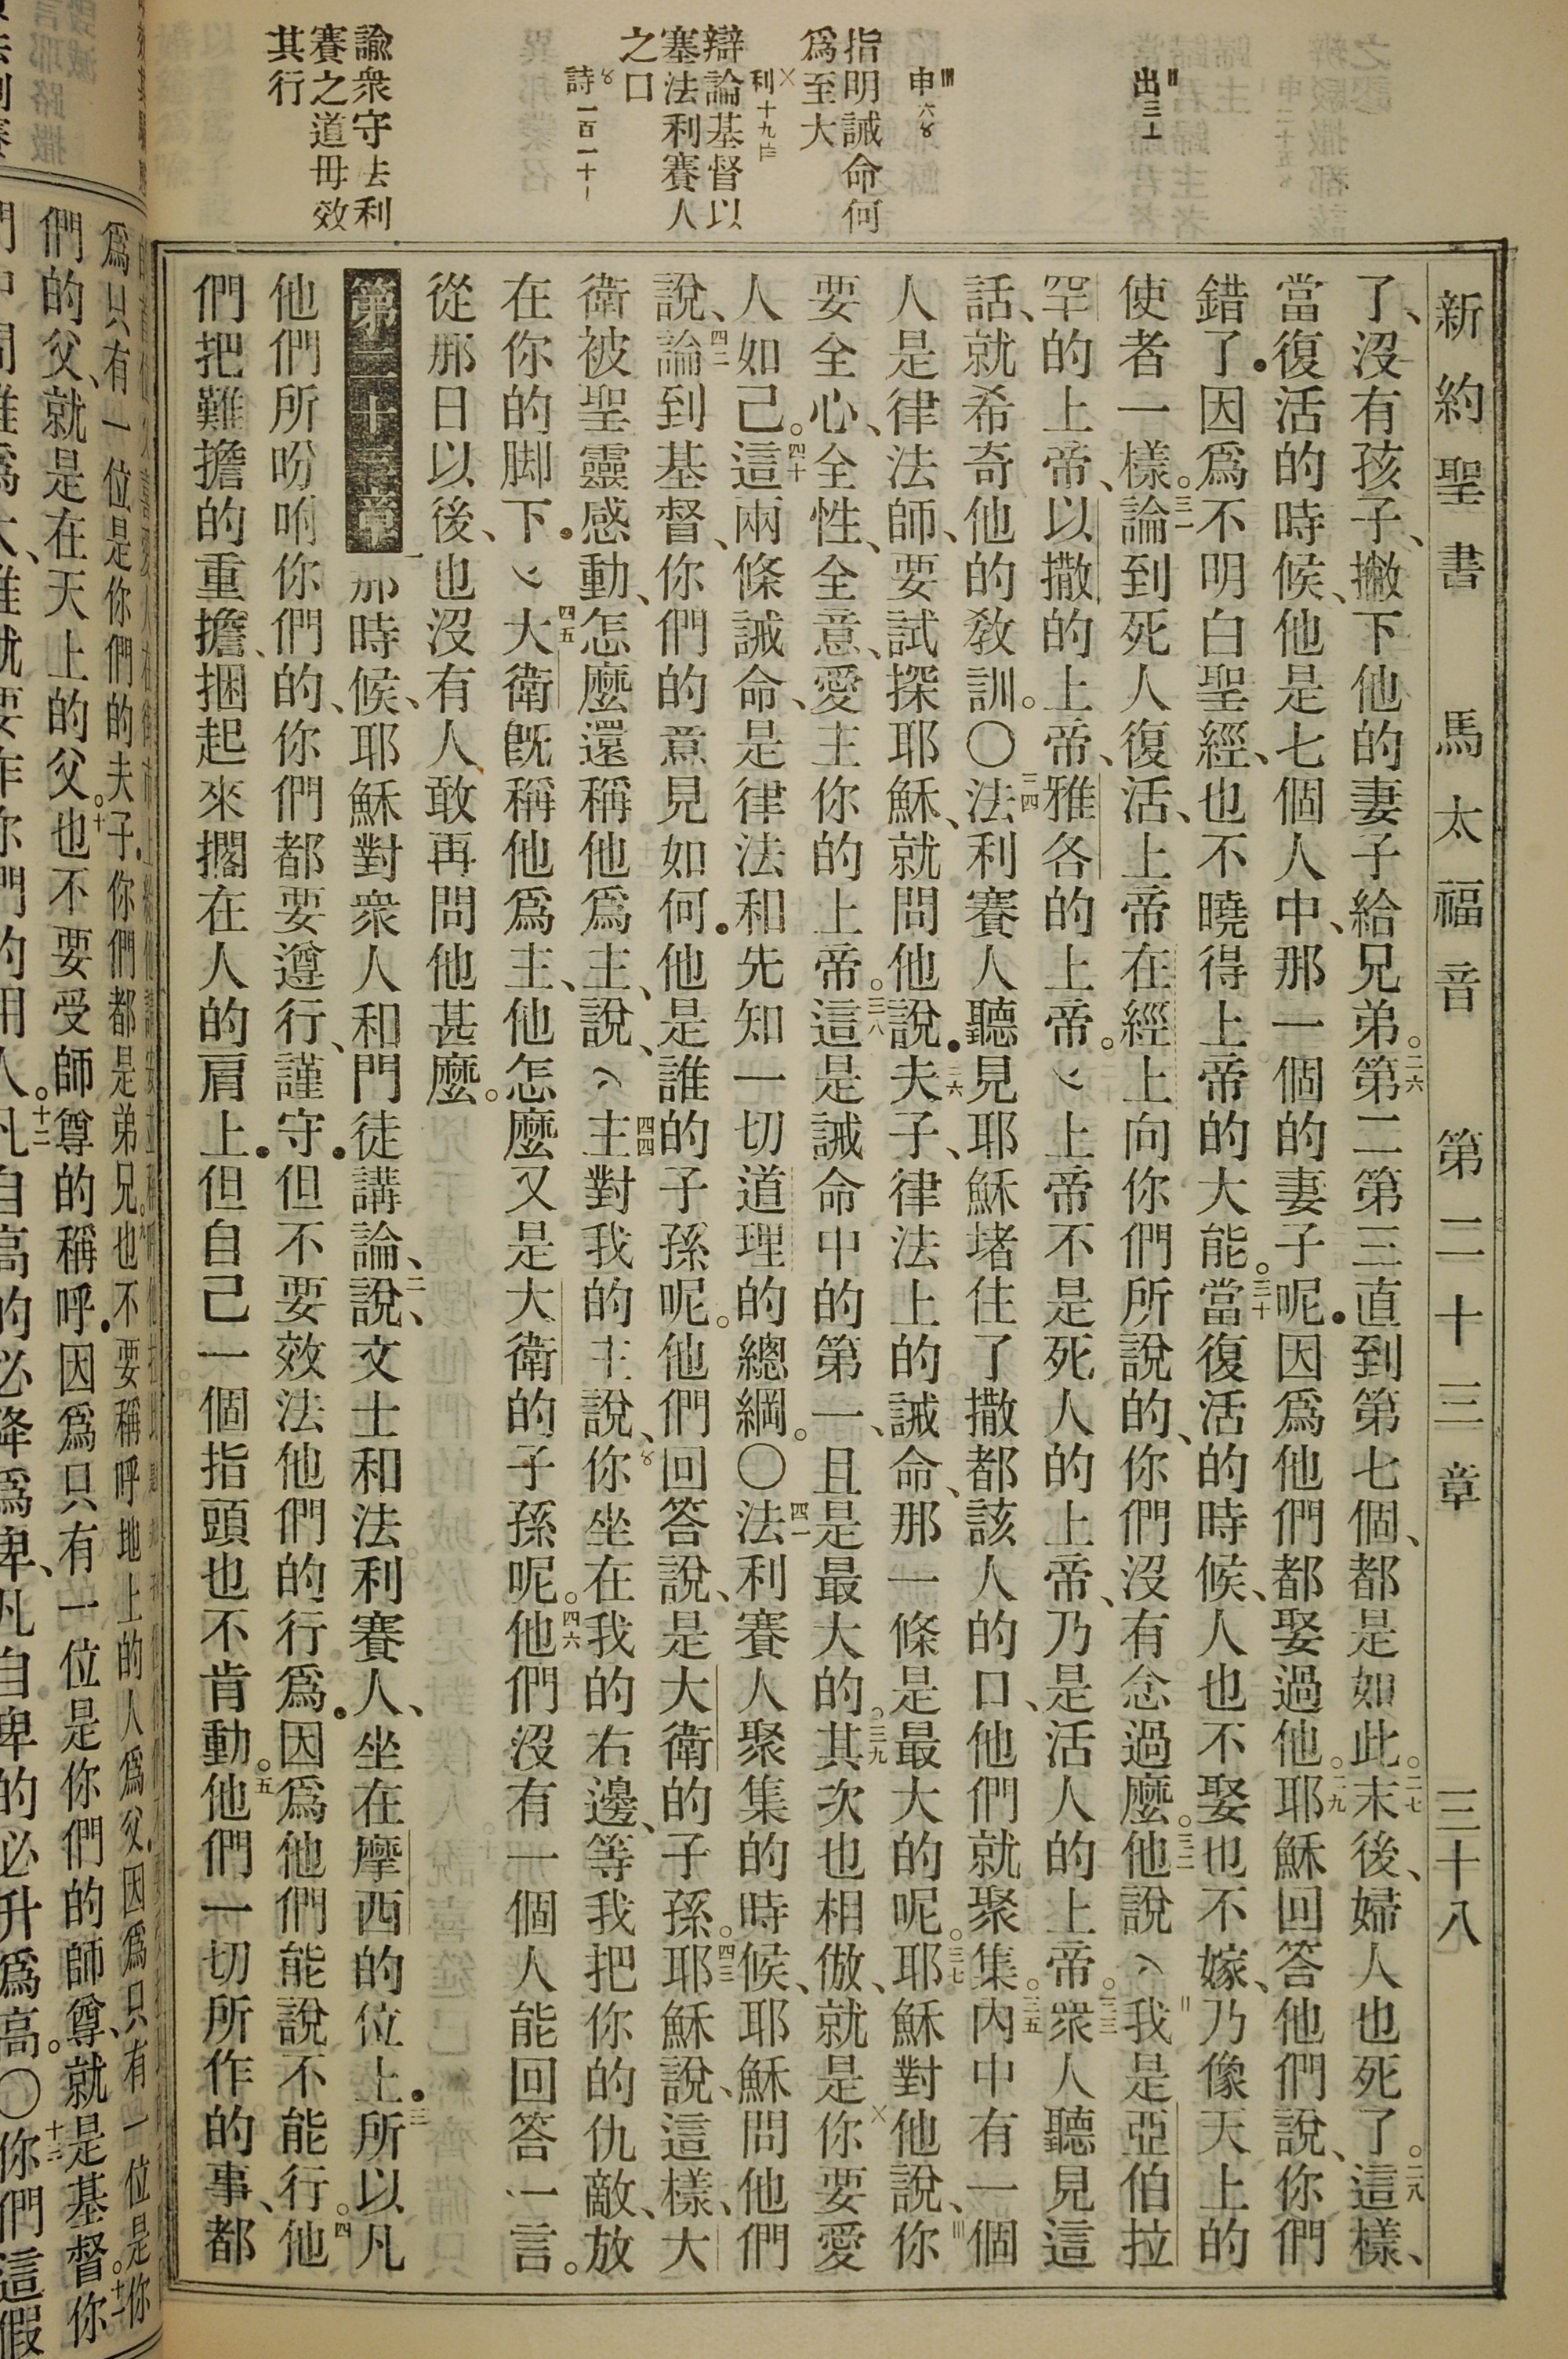 新約聖書 馬太福音 第二十三章 三十八
了、沒有孩子、撇下他的妻子給兄弟。二六第二第三直到第七個、都是如此。二七末後、婦人也死了。二八這樣、
當復活的時候、他是七個人中、那一個的妻子呢•因爲他們都娶過他。二九耶穌回答他們說、你們
錯了•因爲不明白聖經、也不曉得上帝的大能。三十當復活的時候、人也不娶也不嫁、乃像天上的
使者一樣。三一論到死人復活、上帝在經上向你們所說的、你們沒有念過麼。三二他說〈我是亞伯拉
罕的上帝、以撒的上帝、雅各的上帝。〉上帝不是死人的上帝、乃是活人的上帝。三三衆人聽見這
話、就希奇他的敎訓。〇三四法利賽人聽見耶穌堵住了撒都該人的口、他們就聚集。三五內中有一個
人是律法師、要試探耶穌、就問他說•三六夫子、律法上的誡命、那一條是最大的呢。三七耶穌對他說、你
要全心、全性、全意、愛主你的上帝。三八這是誡命中的第一、且是最大的。三九其次也相倣、就是你要愛
人如己。四十這兩條誡命、是律法和先知一切道理的總綱。〇四一法利賽人聚集的時候、耶穌問他們
說、四二論到基督、你們的意見如何•他是誰的子孫呢。他們回答說、是大衛的子孫。四三耶穌說、這樣、大
衛被聖靈感動、怎麼還稱他爲主、說、〈四四主對我的主說、你坐在我的右邊、等我把你的仇敵、放
在你的脚下•〉四五大衛旣稱他爲主、他怎麼又是大衛的子孫呢。四六他們沒有一個人能回答一言。
從那日以後、也沒有人敢再問他甚麼。
第二十三章 一那時候、耶穌對衆人和門徒講論、二說、文士和法利賽人、坐在摩西的位上•三所以凡
他們所吩咐你們的、你們都要遵行、謹守•但不要效法他們的行爲•因爲他們能說不能行。四他
們把難擔的重擔、捆起來擱在人的肩上•但自己一個指頭也不肯動。五他們一切所作的事、都
出三
申六
指明誡命何
爲至大
利十九
辯論基督以
塞法利賽人
之口
詩一百一十
諭衆守法利
賽之道毋效
其行
爲只有一位是你們的夫子•你們都是弟兄。九也不要稱呼地上的人爲父•因爲只有一位是你
們的父、就是在天上的父。十也不要受師尊的稱呼•因爲只有一位是你們的師尊、就是基督。十一你
自高的必降爲卑、凡自卑的必升爲高。〇十三你們這假